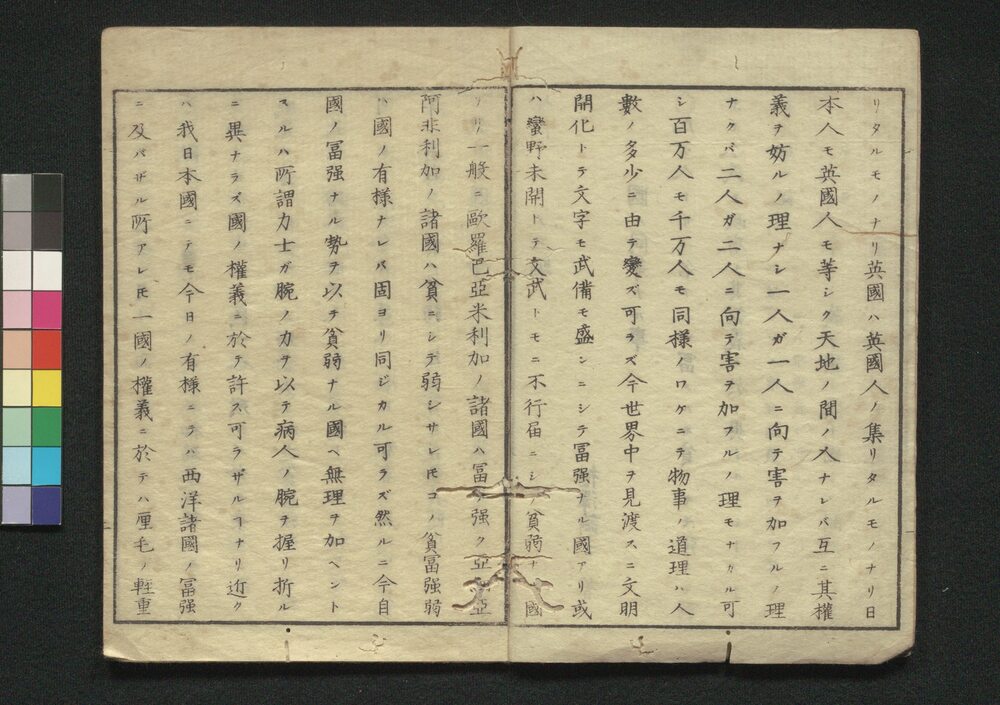 リタルモノナリ英國ハ英國人ノ集リタルモノナリ日
本人モ英國人モ等シク天地ノ間ノ人ナレバ互ニ其權
義ヲ妨ルノ理ナシ一人ガ一人ニ向テ害ヲ加フルノ理
ナクバ二人ガ二人ニ向テ害ヲ加フルノ理モナカル可
シ百万人モ千万人モ同様ノワケニテ物事ノ道理ハ人
數ノ多少ニ由テ變ズ可ラズ今世界中ヲ見渡スニ文明
開化トテ文字モ武備モ盛ンニシテ冨强ナル國アリ或
ハ蠻野未開トテ文武トモニ不行届ニシテ貧弱ナル國
アリ一般ニ歐羅巴亞米利加ノ諸國ハ冨テ强ク亞亞
阿非利加ノ諸國ハ貧ニシテ弱シサレ𪜈コノ貧富强弱
ハ國ノ有様ナレバ固ヨリ同ジカル可ラズ然ルニ今自
國ノ冨强ナル勢ヲ以テ貧弱ナル國ヘ無理ヲ加ヘント
スルハ所謂力士ガ腕ノ力ヲ以テ病人ノ腕ヲ握リ折ル
ニ異ナラズ國ノ權義ニ於テ許ス可ラザルヿナリ近ク
ハ我日本國ニテモ今日ノ有様ニテハ西洋諸國ノ冨强
ニ及バザル所アレ𪜈一國ノ權義ニ於テハ厘毛ノ輕重